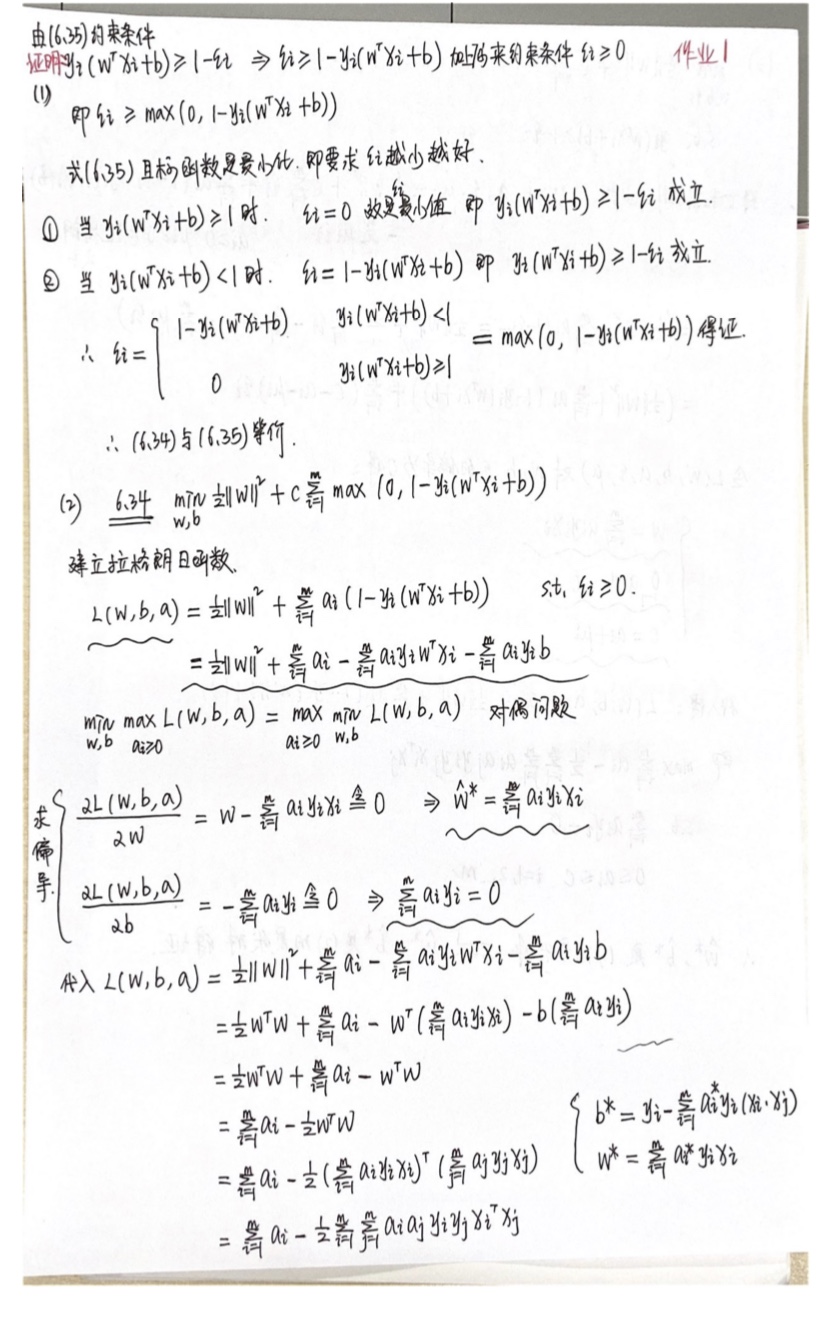 由(6.35)约束条件
证明 yi(wᵀxi+b)≥1-ξi ⇒ ξi≥1-yi(wᵀxi+b) 加上约束条件 ξi≥0 作业1
(1)
即 ξi ≥ max(0, 1-yi(wᵀxi+b))
式(6.35)目标函数是最小化,即要求 ξi越小越好.
① 当 yi(wᵀxi+b)≥1 时. ξi=0 故是ξi最小值 即 yi(wᵀxi+b)≥1-ξi 成立.
② 当 yi(wᵀxi+b)<1 时. ξi=1-yi(wᵀxi+b) 即 yi(wᵀxi+b)≥1-ξi 成立.
∴ ξi = { 1-yi(wᵀxi+b) yi(wᵀxi+b)<1
0 yi(wᵀxi+b)≥1 = max(0, 1-yi(wᵀxi+b)) 得证.
∴ (6.34)与(6.35)等价.
(2) 6.34 min w,b ½||w||² + C Σᵐi=1 max(0, 1-yi(wᵀxi+b))
建立拉格朗日函数.
L(w,b,a) = ½||w||² + Σᵐi=1 ai(1-yi(wᵀxi+b)) s.t. ξi≥0.
= ½||w||² + Σᵐi=1 ai - Σᵐi=1 aiyiwᵀxi - Σᵐi=1 aiyib
min w,b max ai≥0 L(w,b,a) = max ai≥0 min w,b L(w,b,a) 对偶问题
求偏导. { ∂L(w,b,a)/∂w = w - Σᵐi=1 aiyixi ≙ 0 ⇒ ŵ* = Σᵐi=1 aiyixi
∂L(w,b,a)/∂b = -Σᵐi=1 aiyi ≙ 0 ⇒ Σᵐi=1 aiyi = 0
代入 L(w,b,a) = ½||w||² + Σᵐi=1 ai - Σᵐi=1 aiyiwᵀxi - Σᵐi=1 aiyib
= ½wᵀw + Σᵐi=1 ai - wᵀ(Σᵐi=1 aiyixi) - b(Σᵐi=1 aiyi)
= ½wᵀw + Σᵐi=1 ai - wᵀw
= Σᵐi=1 ai - ½wᵀw
= Σᵐi=1 ai - ½(Σᵐi=1 aiyixi)ᵀ(Σᵐj=1 ajyjxj)
= Σᵐi=1 ai - ½ Σᵐi=1 Σᵐj=1 aiajyiyjxiᵀxj
{ b* = yi - Σᵐi=1 ai*yi(xi·xj)
w* = Σᵐi=1 ai*yixi